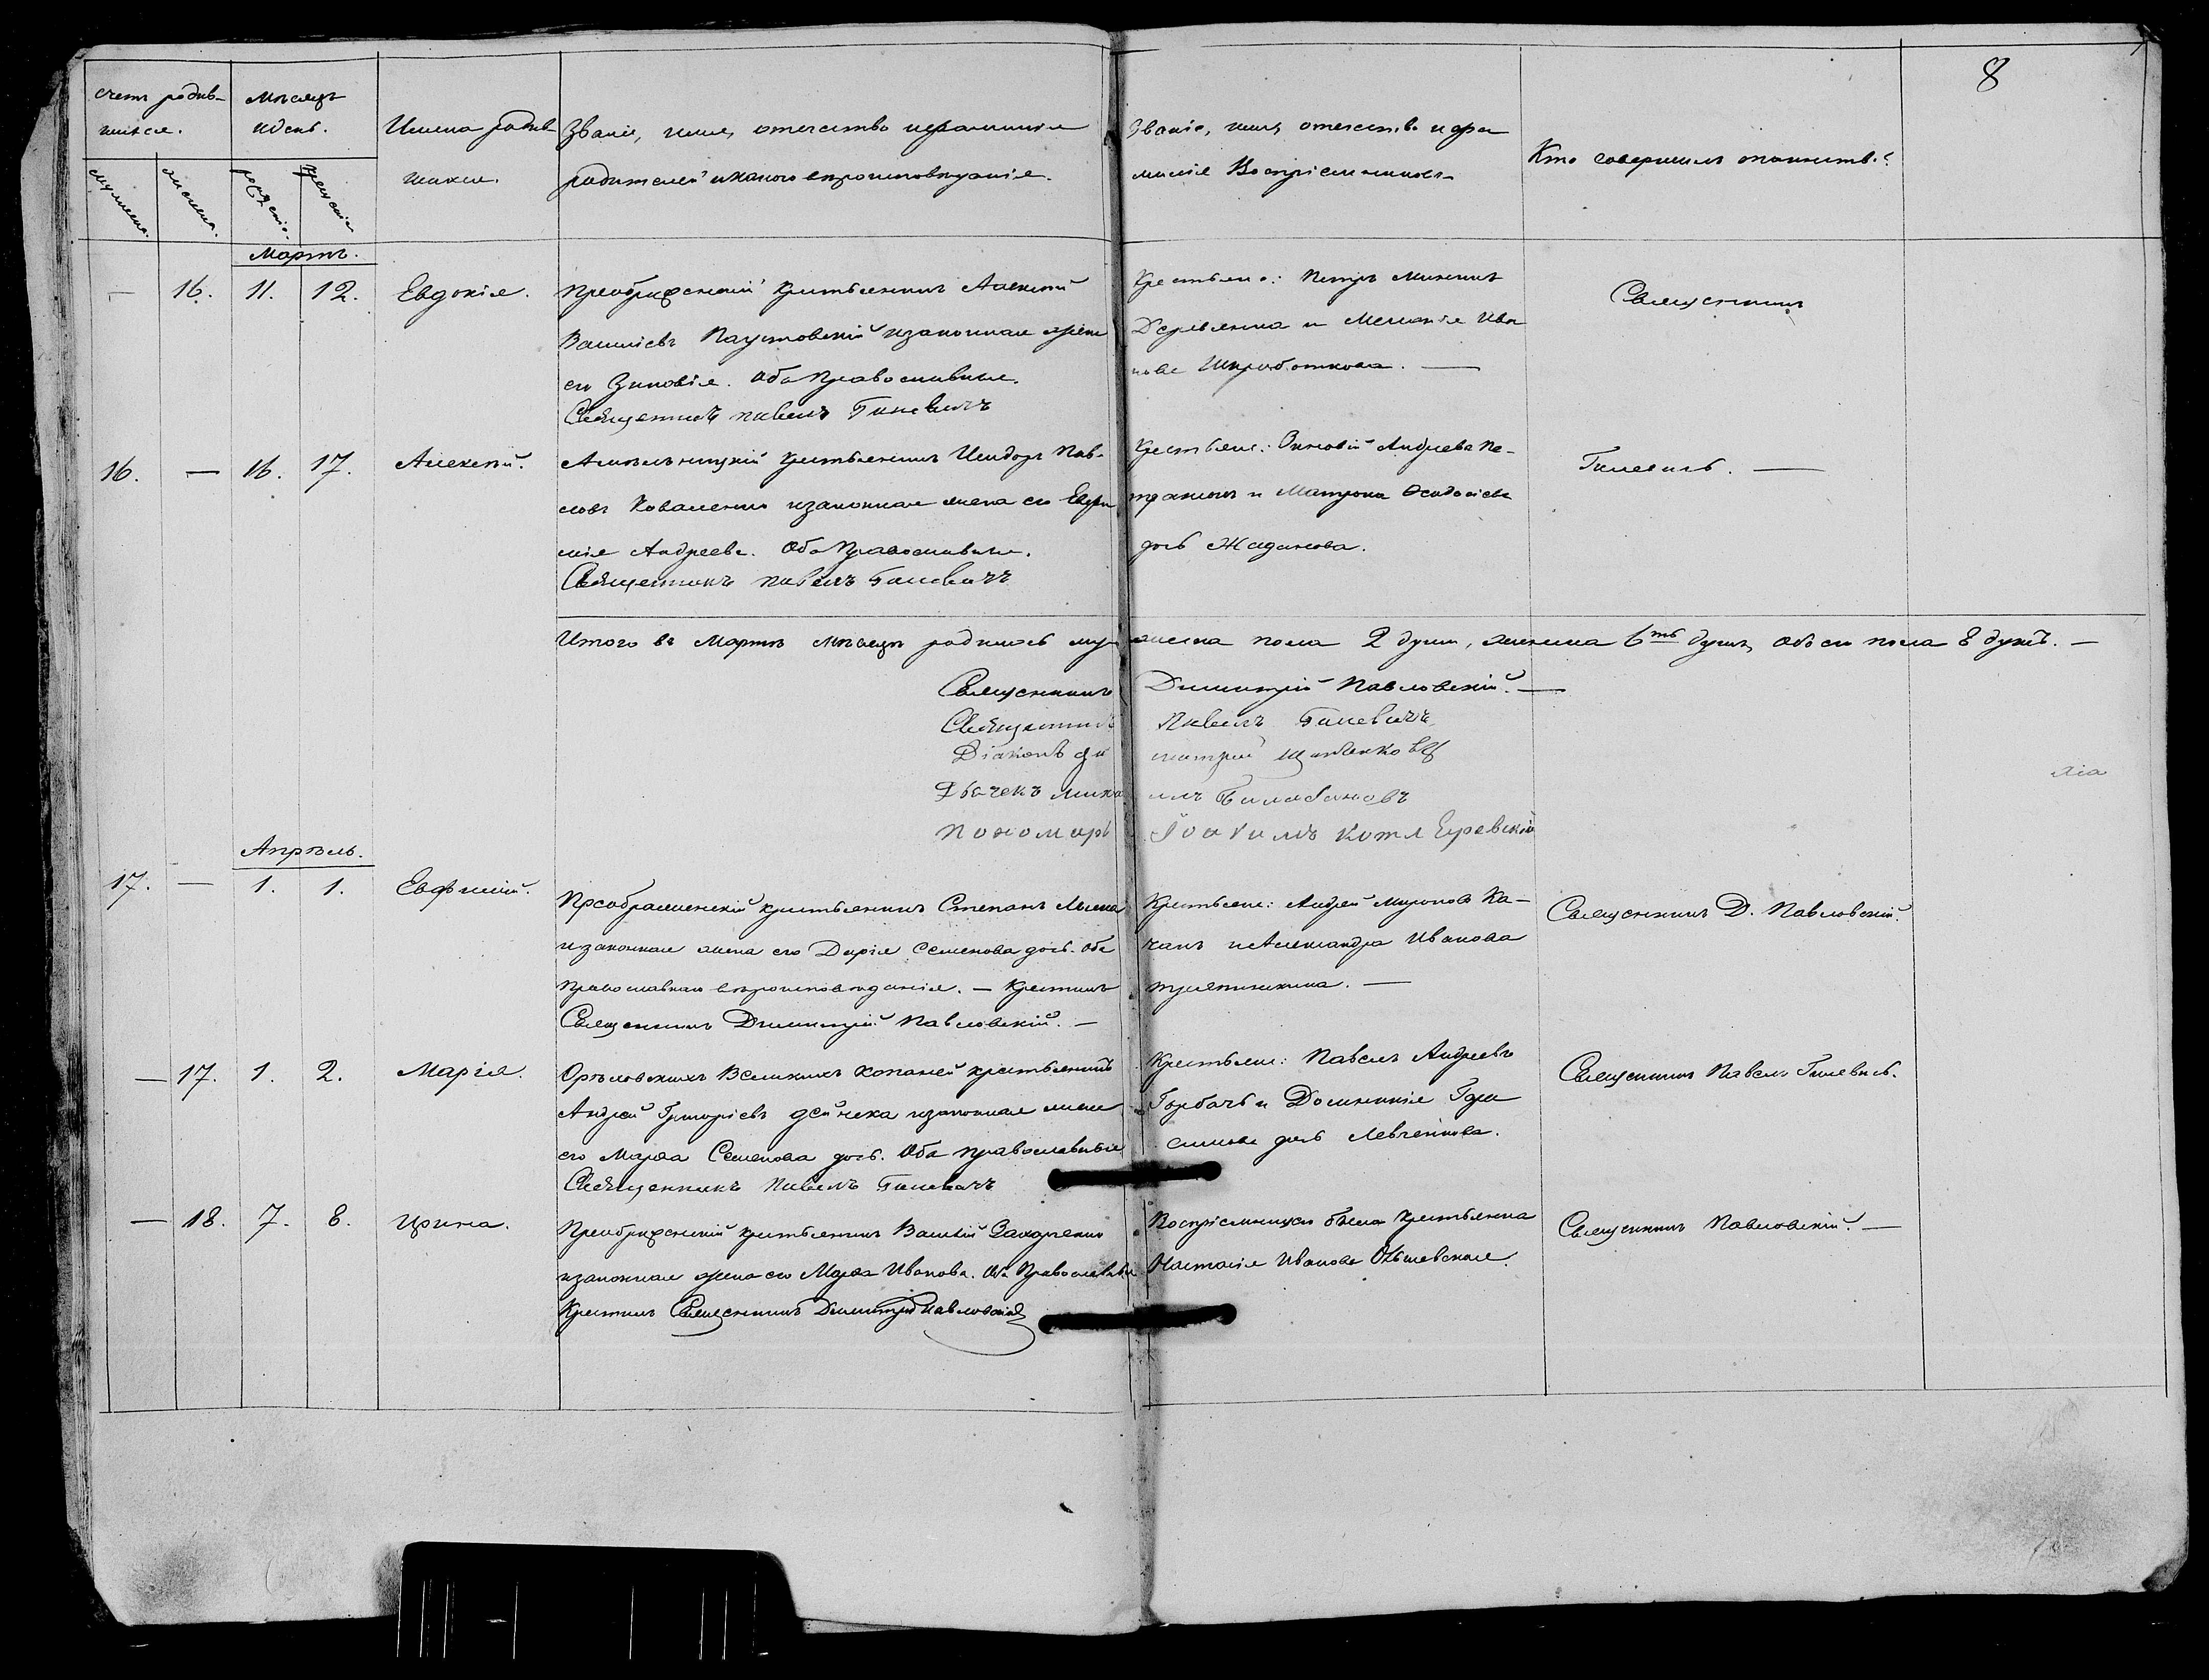 8
Счетъ родив-
шихся.
Мѣсяцъ
и день.
Имена родив-
шихся.
Званіе, имя, отечество и фамилія
родителей и какого вѣроисповѣданія.
Званіе, имя, отечество и фа-
милія Воспріемниковъ
Кто совершилъ таинство?
мужеска.
женска.
рожденія.
крещенія
Мартъ.
— 16. 11. 12. Евдокія.
Преображенскій крестьянинъ Алексѣй
Василіевъ Паустовскій и законная жена
его Зиновія. Оба Православные.
Священникъ Павелъ Гилевичъ
Крестьяне: Петръ
и Меланія Ива
нова
Священникъ
16. — 16. 17. Алексѣй.
крестьянинъ Исидоръ Пав-
ловъ Коваленко и законная жена его Евфи
мія Андреева. Оба Православные.
Священникъ Павелъ Гилевичъ
Крестьяне: Андреевъ
и Матрона Феодосіева
дочь Жаданова.
Гилевичъ. —
Итого въ Мартѣ мѣсяцѣ родилось мужеска пола 2 души, женска 6ть душъ, обоего пола 8 душъ. —
Священникъ Димитрій Павловскій. —
Священникъ Павелъ Гилевичъ
Діаконъ Димитрій
Дьячекъ Михаилъ Балабановъ
Пономарь Іоакимъ
Апрѣль.
17. — 1. 1. Евфимій.
Преображенскій крестьянинъ Степанъ
и законная жена его Дарія Семенова дочь. Оба
Православнаго вѣроисповѣданія. — Крестилъ
Священникъ Димитрій Павловскій. —
Крестьяне: Андрей Мироновъ Ка-
чанъ и Александра Иванова
Священникъ Д. Павловскій.
— 17. 1. 2. Марія.
Орѣловскихъ Великихъ Копаней крестьянинъ
Андрей Григоріевъ Дейнека и законная жена
его Марѳа Семенова дочь. Оба православные
Священникъ Павелъ Гилевичъ
Крестьяне: Павелъ Андреевъ
Горбачь и Домникія Гера
симова дочь Левченкова.
Священникъ Павелъ Гилевичъ.
— 18. 7. 8. Ирина.
Преображенскій крестьянинъ Василій Захарченко
и законная жена его Марѳа Иванова. Оба Православные
Крестилъ Священникъ Димитрій Павловскій
Воспріемницею была крестьянка
Настасія Иванова
Священникъ Павловскій. —